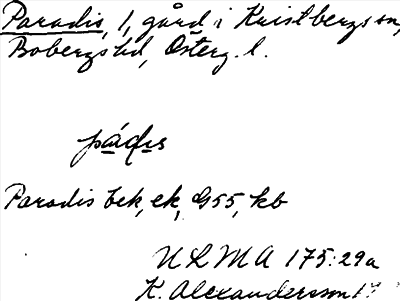 Paradis, 1, gård i Kristbergs sn,
Bobergs hd, Österg. l.
pádis
Paradis bek, ek, G55, kb
ULMA 175:29a
K. Alexandersson